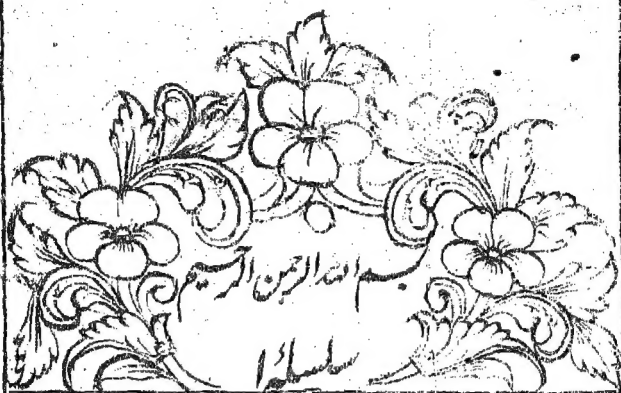 بسم الله الرحمن الرحيم
سلسلۂ ا